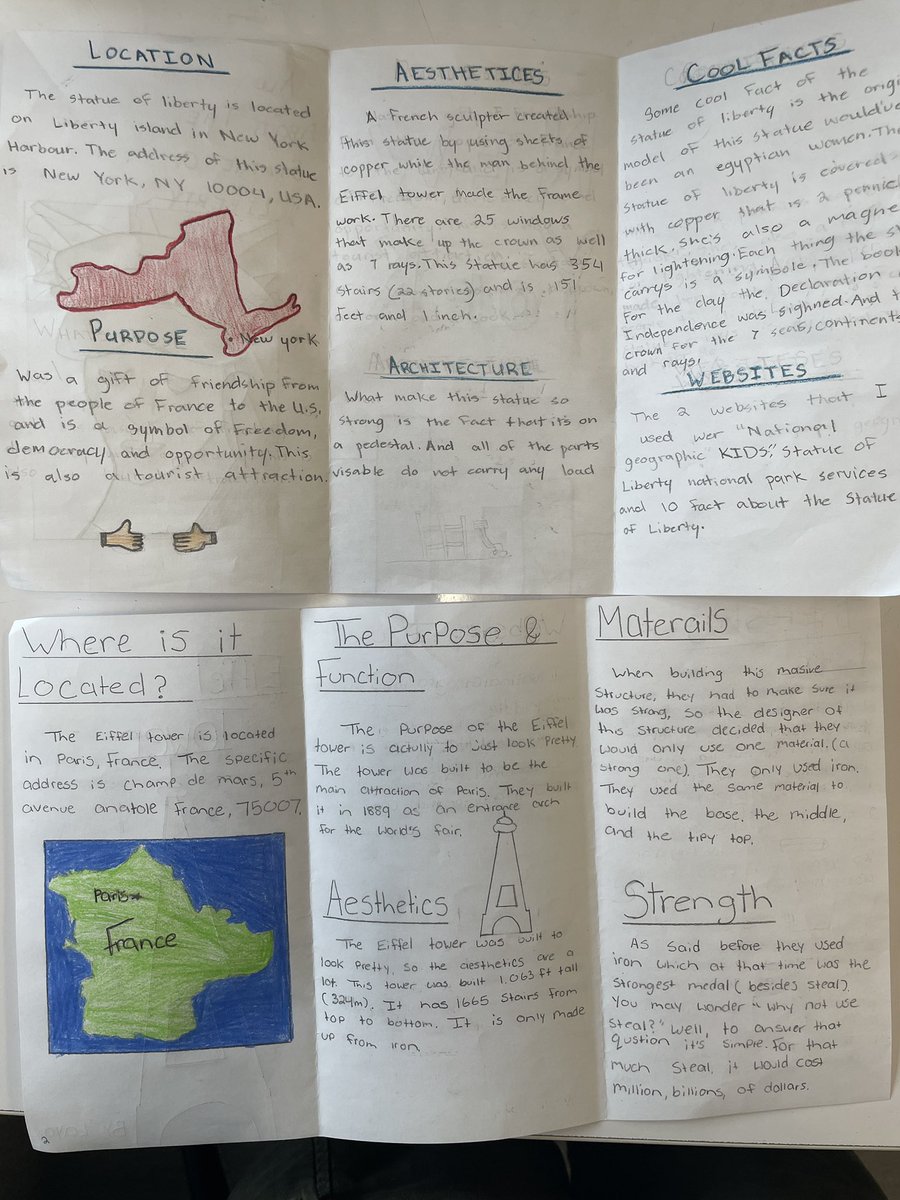 LOCATION
The statue of liberty is located
on Liberty island in New York
Harbour. The address of this statue
is New York, NY 10004, USA.
• New york
PURPOSE
Was a gift of friendship from
the people of France to the U.S,
and is a symbol of Freedom,
democracy and opportunity. This
is also a tourist attraction.
AESTHETICES
A French sculpter created
this statue by using sheets of
copper while the man behind the
Eiffel tower, made the frame
work. There are 25 windows
that make up the crown as well
as 7 rays. This Statue has 354
Stairs (22 stories) and is 151
feet and 1 inch.
ARCHITECTURE
What make this statue so
Strong is the fact that it's on
a pedestal. And all of the parts
visable do not carry any load
COOL FACTS
Some cool Fact of the
statue of liberty is the
model of this statue would've
been an egyptian women. The
Statue of liberty is covered
with copper that is 2
thick, she's also a
for lightening. Each thing the
carrys is a symbole. The
For the clay the Declaration
Independence was sighned. And
crown for the 7 seas, continents
and rays.
WEBSITES
The 2 websites that I
used wer "National
geographic KIDS," Statue of
Liberty national park services
and 10 fact about the Statue
of Liberty.
Where is it
Located?
The Eiffel tower is located
in Paris, France. The specific
address is champ de mars, 5th
avenue anatole France, 75007.
Paris
France
2
The Purpose &
Function
The Purpose of the Eiffel
tower is actully to just look Pretty.
The tower was built to be the
main attraction of Paris. They built
it in 1889 as an entrance arch
for the world's fair.
Aesthetics
The Eiffel tower was built to
look Pretty, so the aesthetics are a
lot. This tower was built 1.063 ft tall
(324m). It has 1665 Stairs from
top to bottom. It is only made
up from iron.
Materails
When building this masive
Structure, they had to make sure it
was strong, so the designer of
this structure decided that they
would only use one material. (a
strong one). They only used iron.
They used the same material to
build the base, the middle,
and the tipy top.
Strength
As said before they used
iron which at that time was the
strongest medal (besides steal).
You may wonder "why not use
Steal?" well, to answer that
qustion it's simple. For that
much Steal, it would cost
million, billions, of dollars.